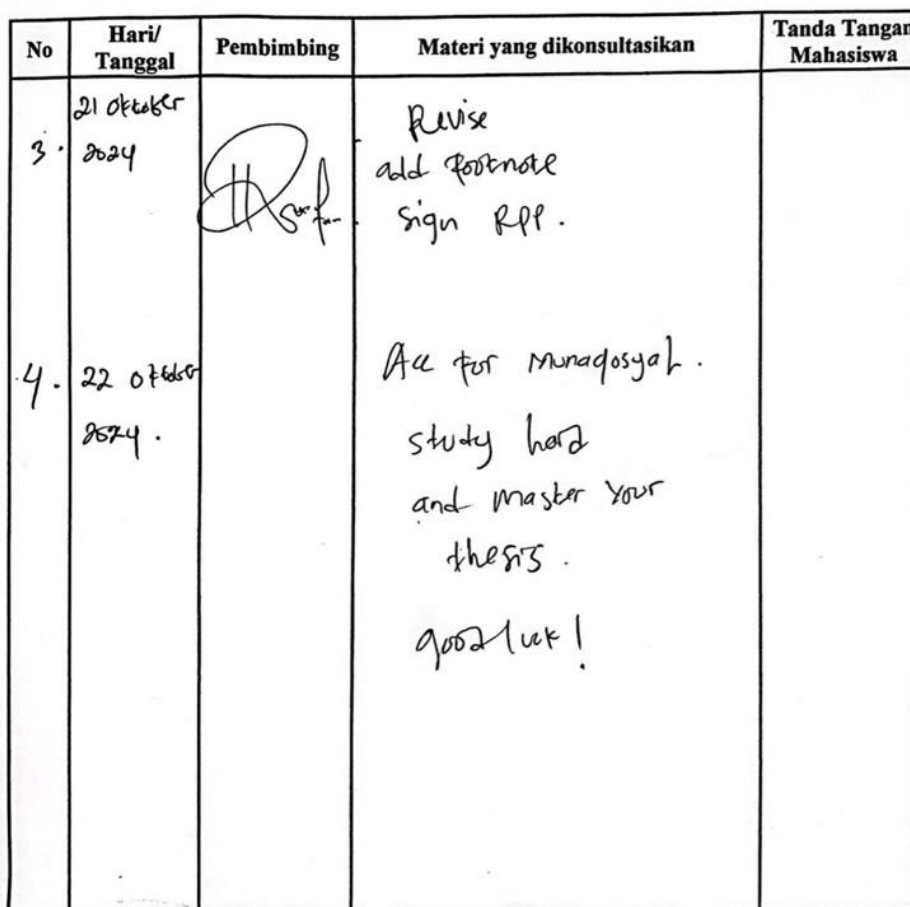 No
Hari/
Tanggal
Pembimbing
Materi yang dikonsultasikan
Tanda Tangan
Mahasiswa
3.
21 Oktober
2024
Revise
add footnote
sign RPP.
4.
22 Oktober
2024.
Acc for Munaqosyah.
study hard
and master your
thesis.
good luck!